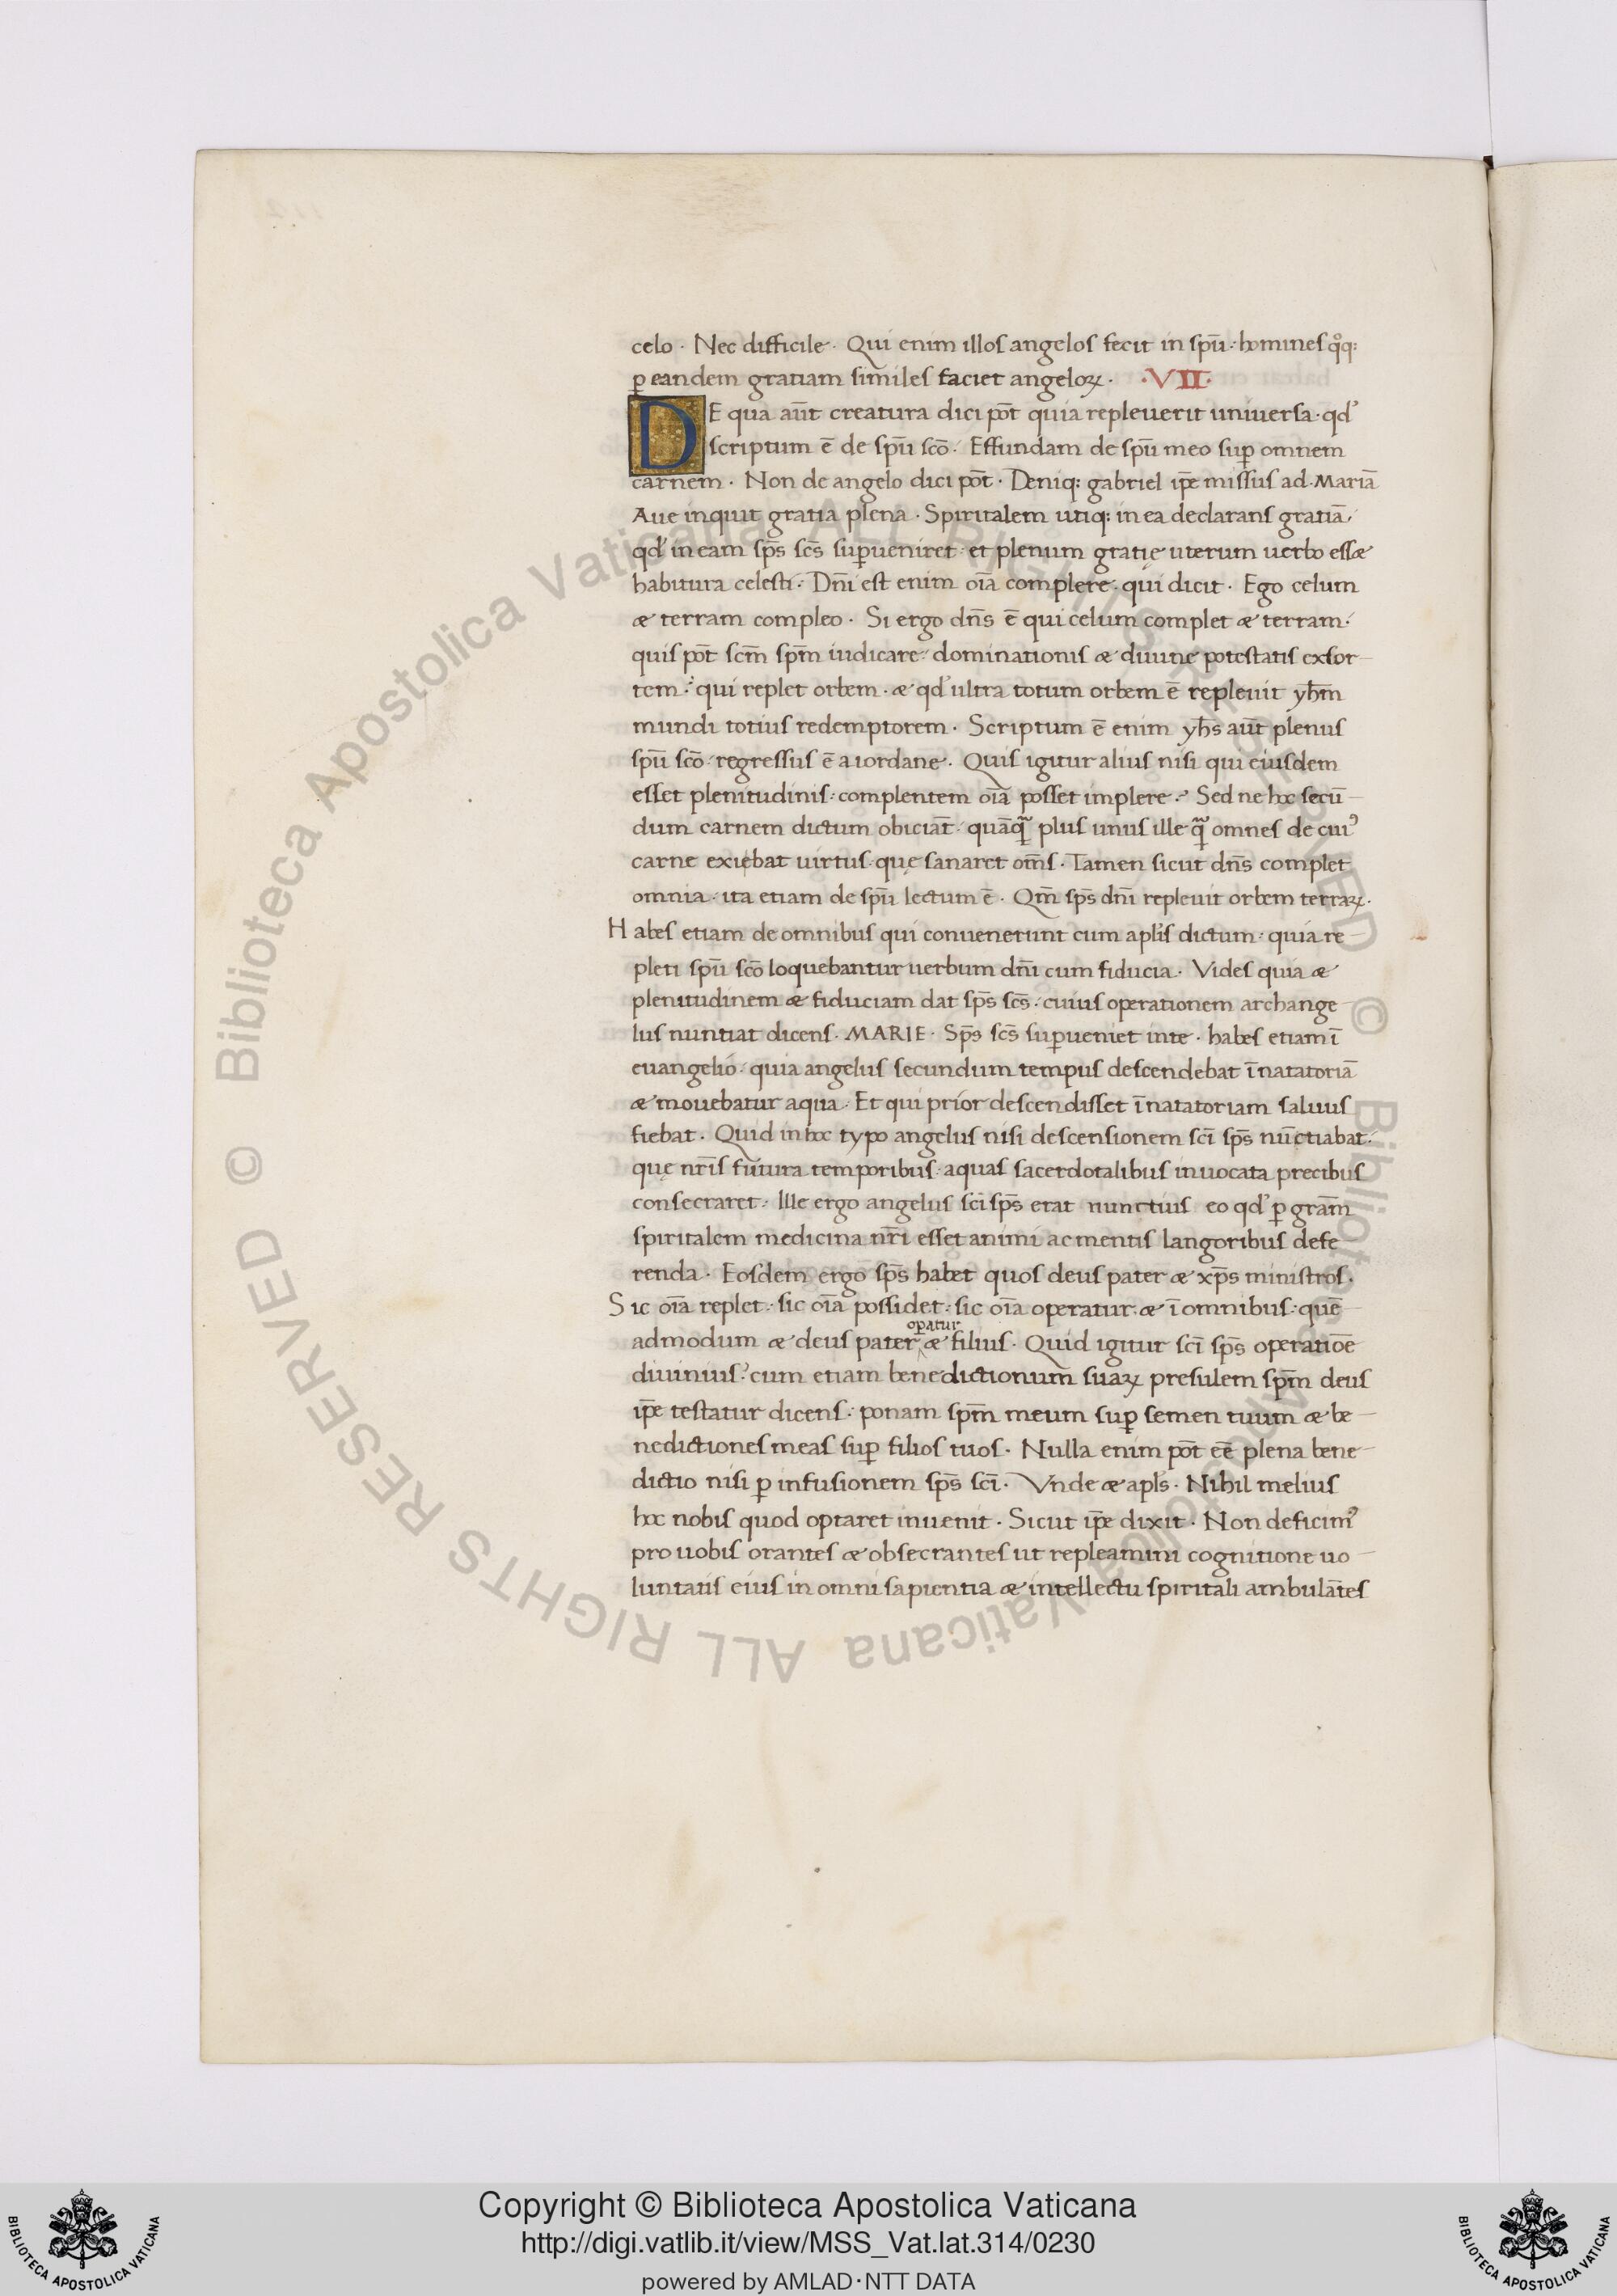 celo · Nec difficile · Qui enim illos angelos fecit in spū : homines qͦq:
ꝑ eandem gratiam similes faciet angeloꝝ · ·VII·
DE qua aūt creatura dici pōt quia repleuerit uniuersa · qdʼ
scriptum ē de spū scō : Effundam de spū meo suꝑ omnem
carnem · Non de angelo dici pōt · Deniq: gabriel ip̄e missus ad · Mariā
Aue inquit gratia plena · Spiritalem utiq: in ea declarans gratiā ·
qdʼ in eam sp̄s sc̄s suꝑueniret · et plenum gratię uterum uerbo essæ
habitura celesti : Dn̄i est enim oīa complere · qui dicit · Ego celum
æ terram compleo · Si ergo dn̄s ē qui celum complet æ terram ·
quis pōt scm̄ spm̄ iudicare : dominationis æ diuine potestatis exsor-
tem : qui replet orbem · æ qdʼ ultra totum orbem ē repleuit yhm̄
mundi totius redemptorem · Scriptum ē enim yhs̄ aūt plenus
spū scō regressus ē a iordane · Quis igitur alius nisi qui eiusdem
esset plenitudinis : complentem oīa posset implere · Sed ne hoc secū-
dum carnem dictum obiciāt · quāꝗ̄ plus unus ille ꝗ̄ omnes de cuiꝰ
carne exiebat uirtus · quę sanaret om̄s · Tamen sicut dn̄s complet
omnia · ita etiam de spū lectum ē · Qm̄ sp̄s dn̄i repleuit orbem terraꝝ ·
Habes etiam de omnibus qui conuenerunt cum apl̄is dictum : quia re-
pleti spū scō loquebantur uerbum dn̄i cum fiducia · Vides quia æ
plenitudinem æ fiduciam dat sp̄s sc̄s : cuius operationem archange-
lus nuntiat dicens · MARIE · Sp̄s sc̄s suꝑueniet inte · habes etiam ī
euangelio : quia angelus secundum tempus descendebat ī natatoriā
æ mouebatur aqua · Et qui prior descendisset ī natatoriam saluus
fiebat · Quid in hoc typo angelus nisi descensionem scī sp̄s nūctiabat ·
quę nr̄is futura temporibus · aquas sacerdotalibus inuocata precibus
consecraret : Ille ergo angelus scī sp̄s erat nunctius eo qdʼ ꝑ gram̄
spiritalem medicina nr̄i esset animi ac mentis langoribus defe-
renda · Eosdem ergo sp̄s habet quos deus pater æ xp̄s ministros ·
Sic oīa replet : sic oīa possidet : sic oīa operatur : æ ī omnibus : quē-
oꝑatur
admodum æ deus pater æ filius · Quid igitur scī sp̄s operatiōe
diuinius : cum etiam benedictionum suaꝝ presulem spm̄ deus
ip̄e testatur dicens : ponam spm̄ meum suꝑ semen tuum æ be-
nedictiones meas suꝑ filios tuos · Nulla enim pōt eē plena bene-
dictio nisi ꝑ infusionem sp̄s scī · Vnde æ apl̄s · Nihil melius
hoc nobis quod optaret inuenit · Sicut ip̄e dixit · Non deficimꝰ
pro uobis orantes æ obsecrantes ut repleamini cognitione uo-
luntatis eius in omni sapientia æ intellectu spiritali ambulātes
© Biblioteca Apostolica Vaticana ALL RIGHTS RESERVED
© Biblioteca Apostolica Vaticana ALL RIGHTS RESERVED
BIBLIOTECA APOSTOLICA VATICANA
Copyright © Biblioteca Apostolica Vaticana
http://digi.vatlib.it/view/MSS_Vat.lat.314/0230
powered by AMLAD·NTT DATA
BIBLIOTECA APOSTOLICA VATICANA